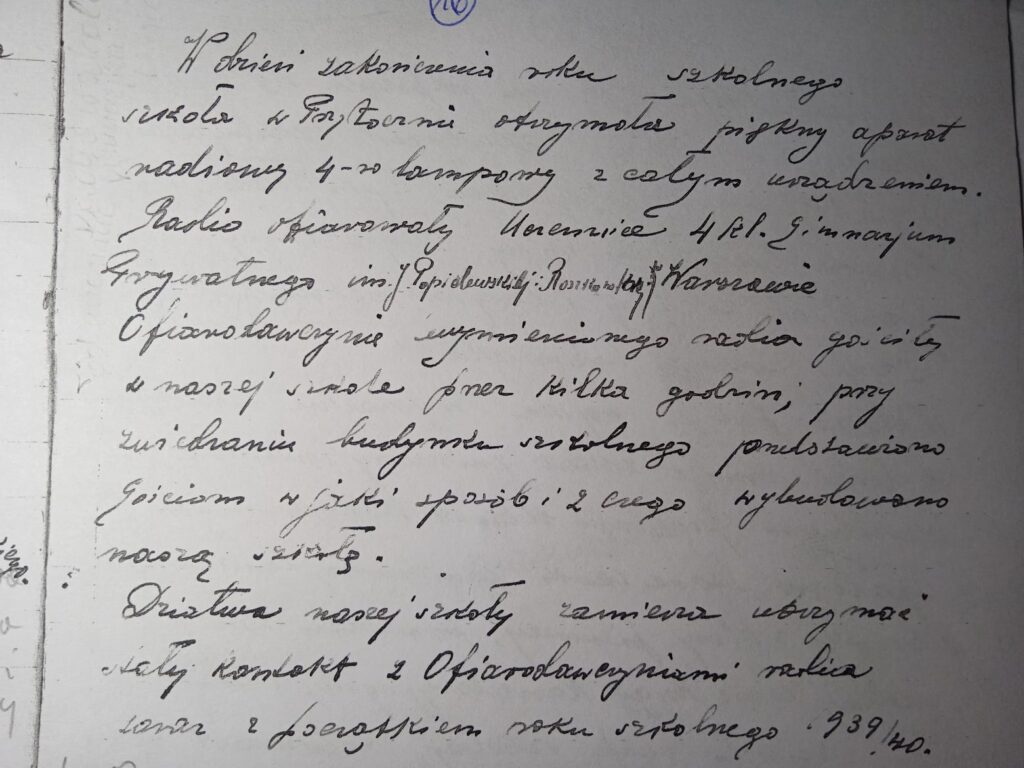 W dzień zakończenia roku szkolnego
szkoła w Przytocznie otrzymała piękny aparat
radiowy 4-ro lampowy z całym urządzeniem.
Radio ofiarowały Uczennice 4 kl. Gimnazjum
Prywatnego im. J Popielewskiej i Roszkowskiej w Warszawie
Ofiarodawczynie wymienionego radia gościły
w naszej szkole przez kilka godzin; przy
zwiedzaniu budynku szkolnego przedstawiono
Gościom w jaki sposób i z czego wybudowano
naszą szkołę.
Dziatwa naszej szkoły zamierza utrzymać
stały kontakt z Ofiarodawczyniami radia
zaraz z początkiem roku szkolnego 1939/40.